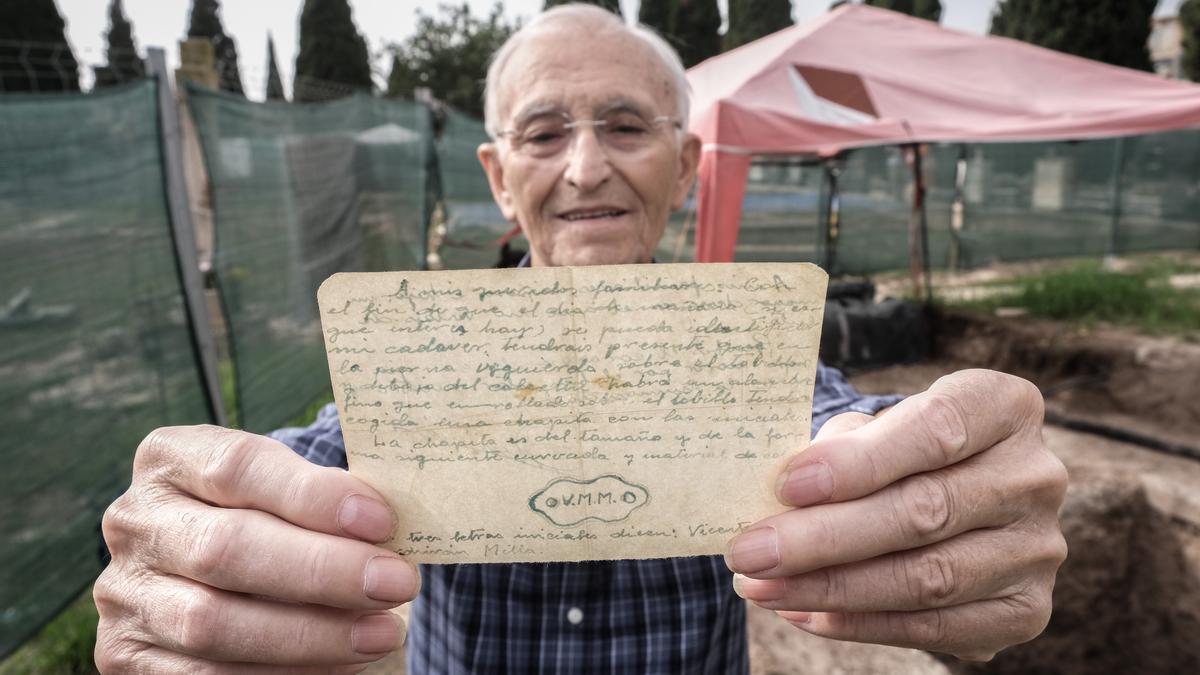 queridos familiares: Con
el fin de que el día
que interés hay, se pueda identificar
mi cadaver, tendrais presente que en
la pierna izquierda, sobre el tobillo
y debajo del calcetin habrá un
fino que enrollado el tobillo
cogida una chapita con las iniciales
La chapita es del tamaño y de la for
ma siguiente envuelta y material de
V.M.M.
tres letras iniciales dicen: Vicente
Milla.